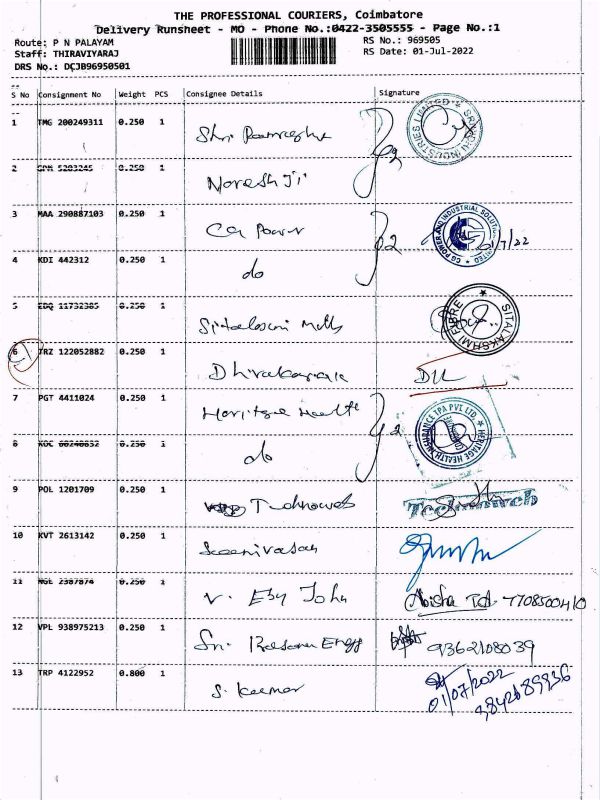 THE PROFESSIONAL COURIERS, Coimbatore
Delivery Runsheet - MO - Phone No.:0422-3505555 - Page No.:1
Route: P N PALAYAM RS No.: 969505
Staff: THIRAVIYARAJ RS Date: 01-Jul-2022
DRS No.: DCJB96950501
S No Consignment No Weight PCS Consignee Details Signature
1 TMG 200249311 0.250 1 Shri
SRI INDUSTRIES LIMITED
2 5203245 0.250 1 Naresh Ji
3 MAA 290887103 0.250 1 CG Power
CG POWER AND INDUSTRIAL SOLUTIONS LIMITED
1/7/22
4 KDI 442312 0.250 1 do
5 EDQ 11732385 0.250 1 Sitalaxmi Mills
SITALAKSHMI FIBRE
6 TRZ 122052882 0.250 1
7 PGT 4411024 0.250 1 Heritage Health
HERITAGE HEALTH INSURANCE TPA PVT LTD
8 KOC 00240832 0.250 1 do
9 POL 1201709 0.250 1 Technoweb
Technoweb
10 KVT 2613142 0.250 1 Sreenivasan
11 NGL 2387874 0.250 1 V. Eby John
7708500410
12 VPL 938975213 0.250 1 Sri Engg
9362108039
13 TRP 4122952 0.800 1 S. Kumar
01/07/2022
9842689936